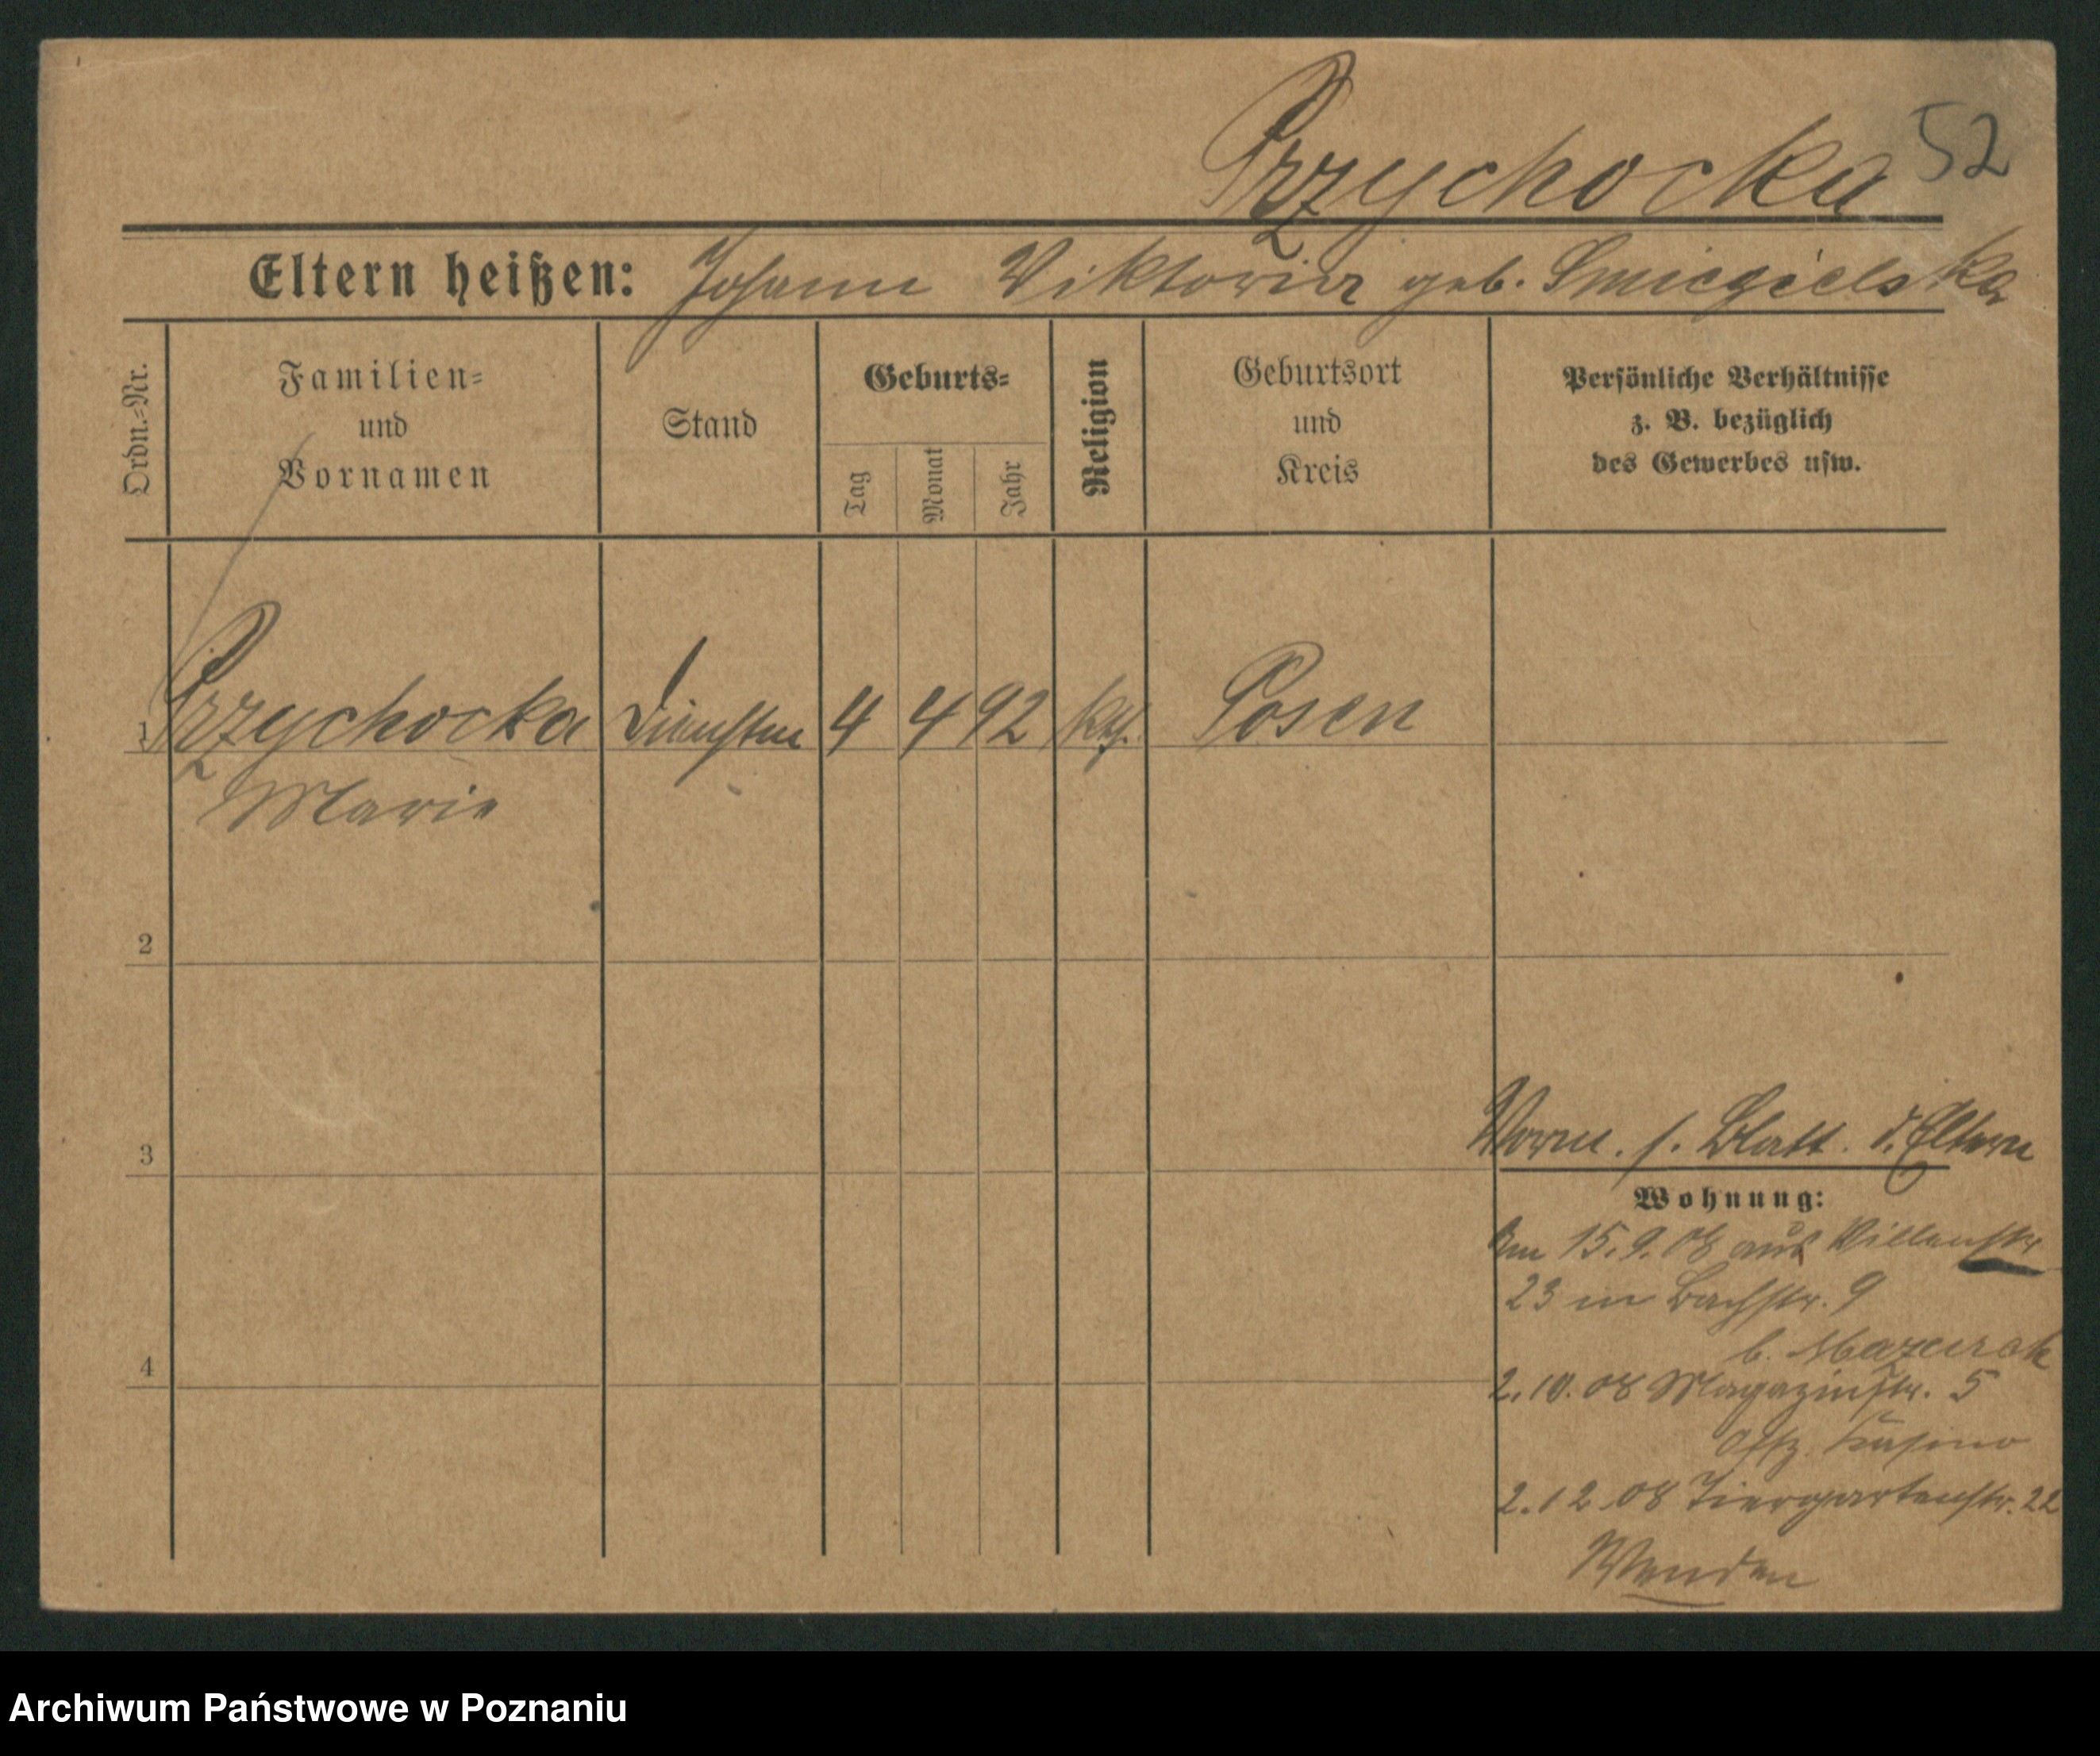 Przychocka 52
Eltern heißen: Johann Viktoria geb. Smiegielska
Ordn.-Nr.
Familien- und Vornamen
Stand
Geburts-
Tag
Monat
Jahr
Religion
Geburtsort und Kreis
Persönliche Verhältnisse z. B. bezüglich des Gewerbes usw.
1 Przychocka 4 4 92 kth. Posen
Marie
2
3
Vorm. s. Blatt. d. Eltern
Wohnung:
Am 15.9.08 aus Villenstr
23 in Bachstr. 9
b. Mazurak
4
2.10.08 Magazinstr. 5
Offz. Kasino
2.12.08 Tiergartenstr. 22
Wenden
Archiwum Państwowe w Poznaniu